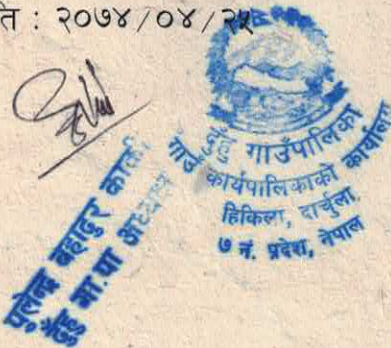 ति : २०७४/०४/२५
दुहुँ गाउँपालिका
गाउँ कार्यपालिकाको कार्यालय
हिकिला, दार्चुला
७ नं. प्रदेश, नेपाल
बहादुर कार्की
गा.पा अध्यक्ष